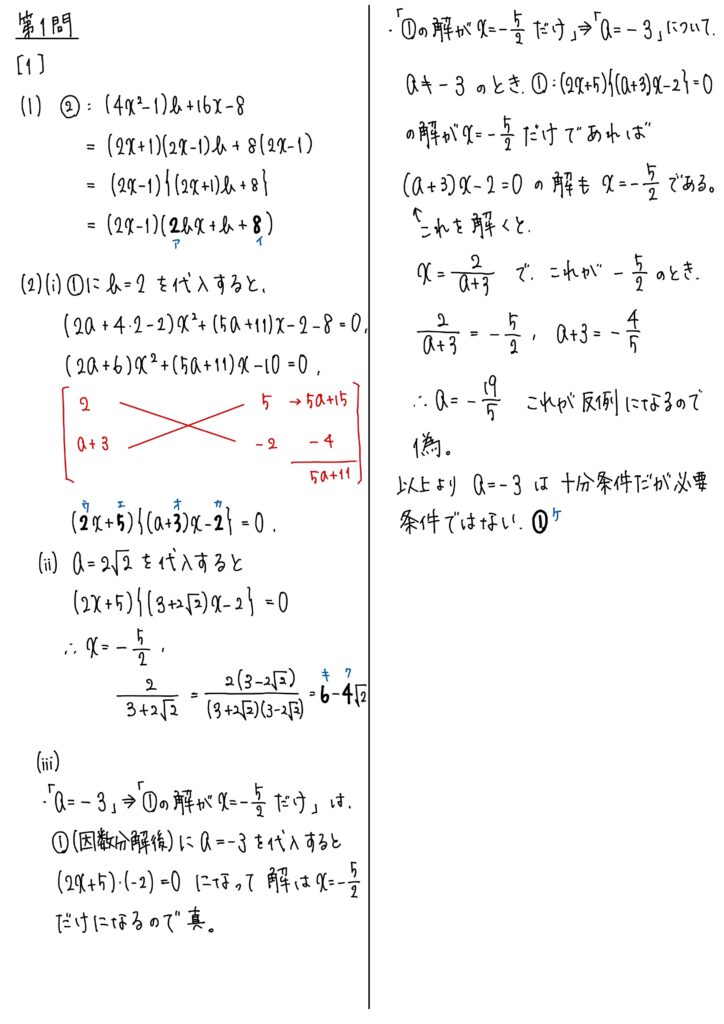 第1問
[1]
(1) ② : (4x²-1)b+16x-8
= (2x+1)(2x-1)b + 8(2x-1)
= (2x-1){(2x+1)b+8}
= (2x-1)(2bx+b+8)
ア イ
(2)(i) ①に b=2 を代入すると、
(2a+4·2-2)x²+(5a+11)x-2-8=0,
(2a+6)x²+(5a+11)x-10=0,
2 5 →5a+15
a+3 -2 -4
5a+11
ウ エ オ カ
(2x+5){(a+3)x-2}=0.
(ii) a=2√2 を代入すると
(2x+5){(3+2√2)x-2}=0
∴ x=-5/2,
キ ク
2/(3+2√2) = 2(3-2√2)/((3+2√2)(3-2√2)) = 6-4√2
(iii)
・「a=-3」⇒「①の解が x=-5/2 だけ」は、
①(因数分解後)に a=-3 を代入すると
(2x+5)·(-2)=0 になって 解は x=-5/2
だけになるので 真。
・「①の解が x=-5/2 だけ」⇒「a=-3」について.
a≠-3 のとき、①:(2x+5){(a+3)x-2}=0
の解が x=-5/2 だけであれば
(a+3)x-2=0 の解も x=-5/2 である。
↑これを解くと、
x=2/(a+3) で、これが -5/2 のとき、
2/(a+3) = -5/2 , a+3=-4/5
∴ a=-19/5 これが反例になるので
偽。
以上より a=-3 は 十分条件だが必要
条件ではない. ① ケ